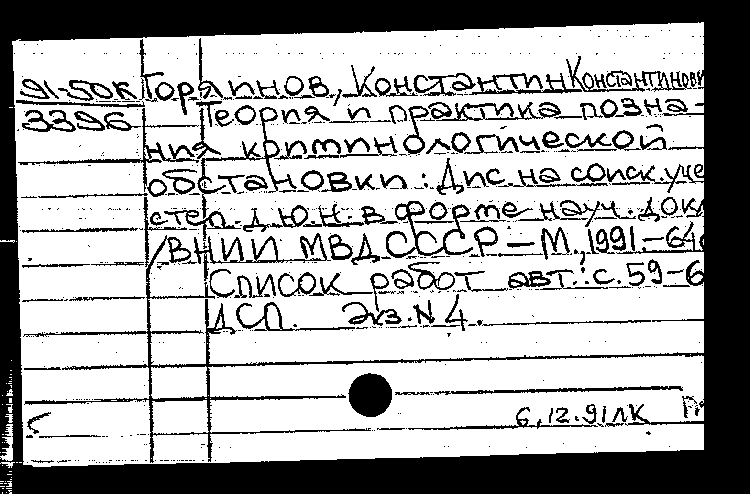 91-50к Горяинов, Константин Константинови
3396 Теория и практика позна-
ния криминологической
обстановки : Дис. на соиск. уче
степ. д.ю.н. в форме науч. докл
/ВНИИ МВД СССР – М., 1991. – 64с
Список работ авт.: с. 59-6
ДСП. Экз. N 4.
6.12.91 ЛК